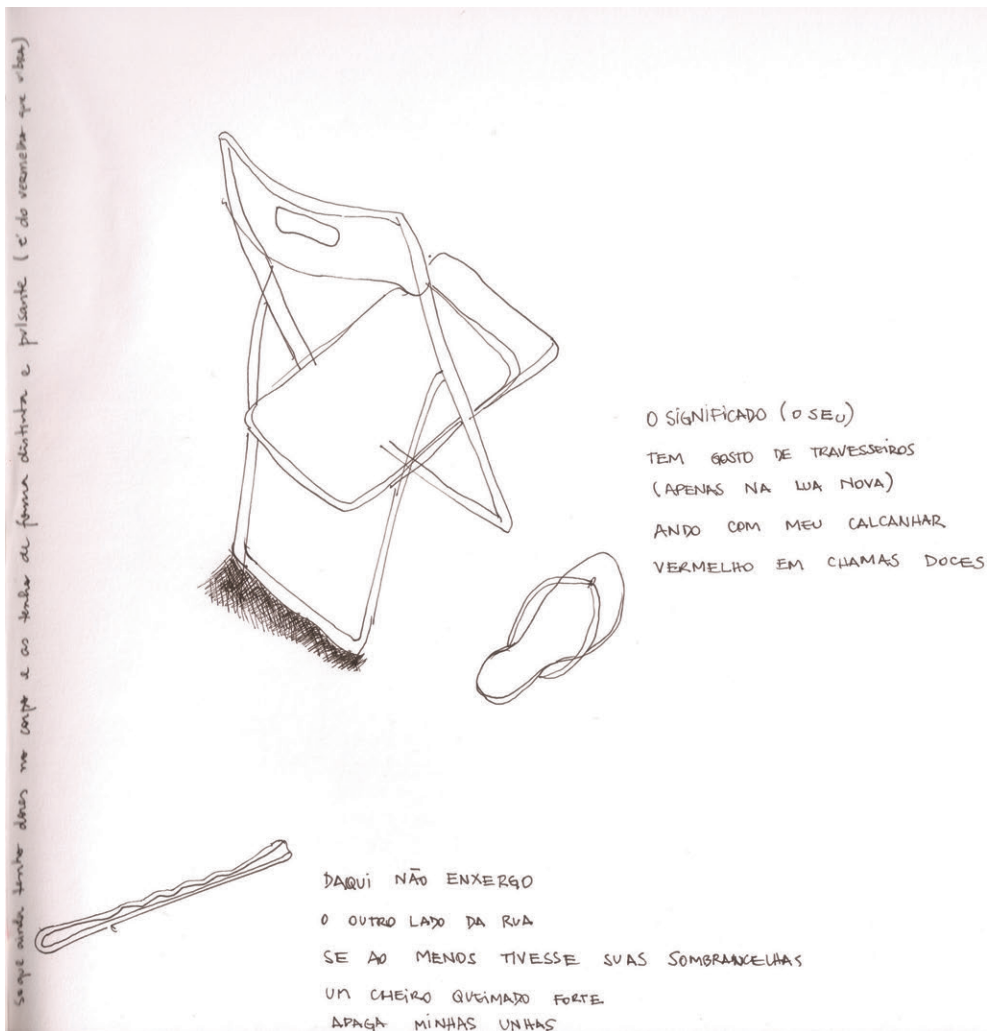 so que ainda tenho dores no corpo e as tenho de forma distinta e pulsante (é do vermelho que vibra)
O SIGNIFICADO (O SEU)
TEM GOSTO DE TRAVESSEIROS
(APENAS NA LUA NOVA)
ANDO COM MEU CALCANHAR
VERMELHO EM CHAMAS DOCES
DAQUI NÃO ENXERGO
O OUTRO LADO DA RUA
SE AO MENOS TIVESSE SUAS SOMBRANCELHAS
UM CHEIRO QUEIMADO FORTE
APAGA MINHAS UNHAS